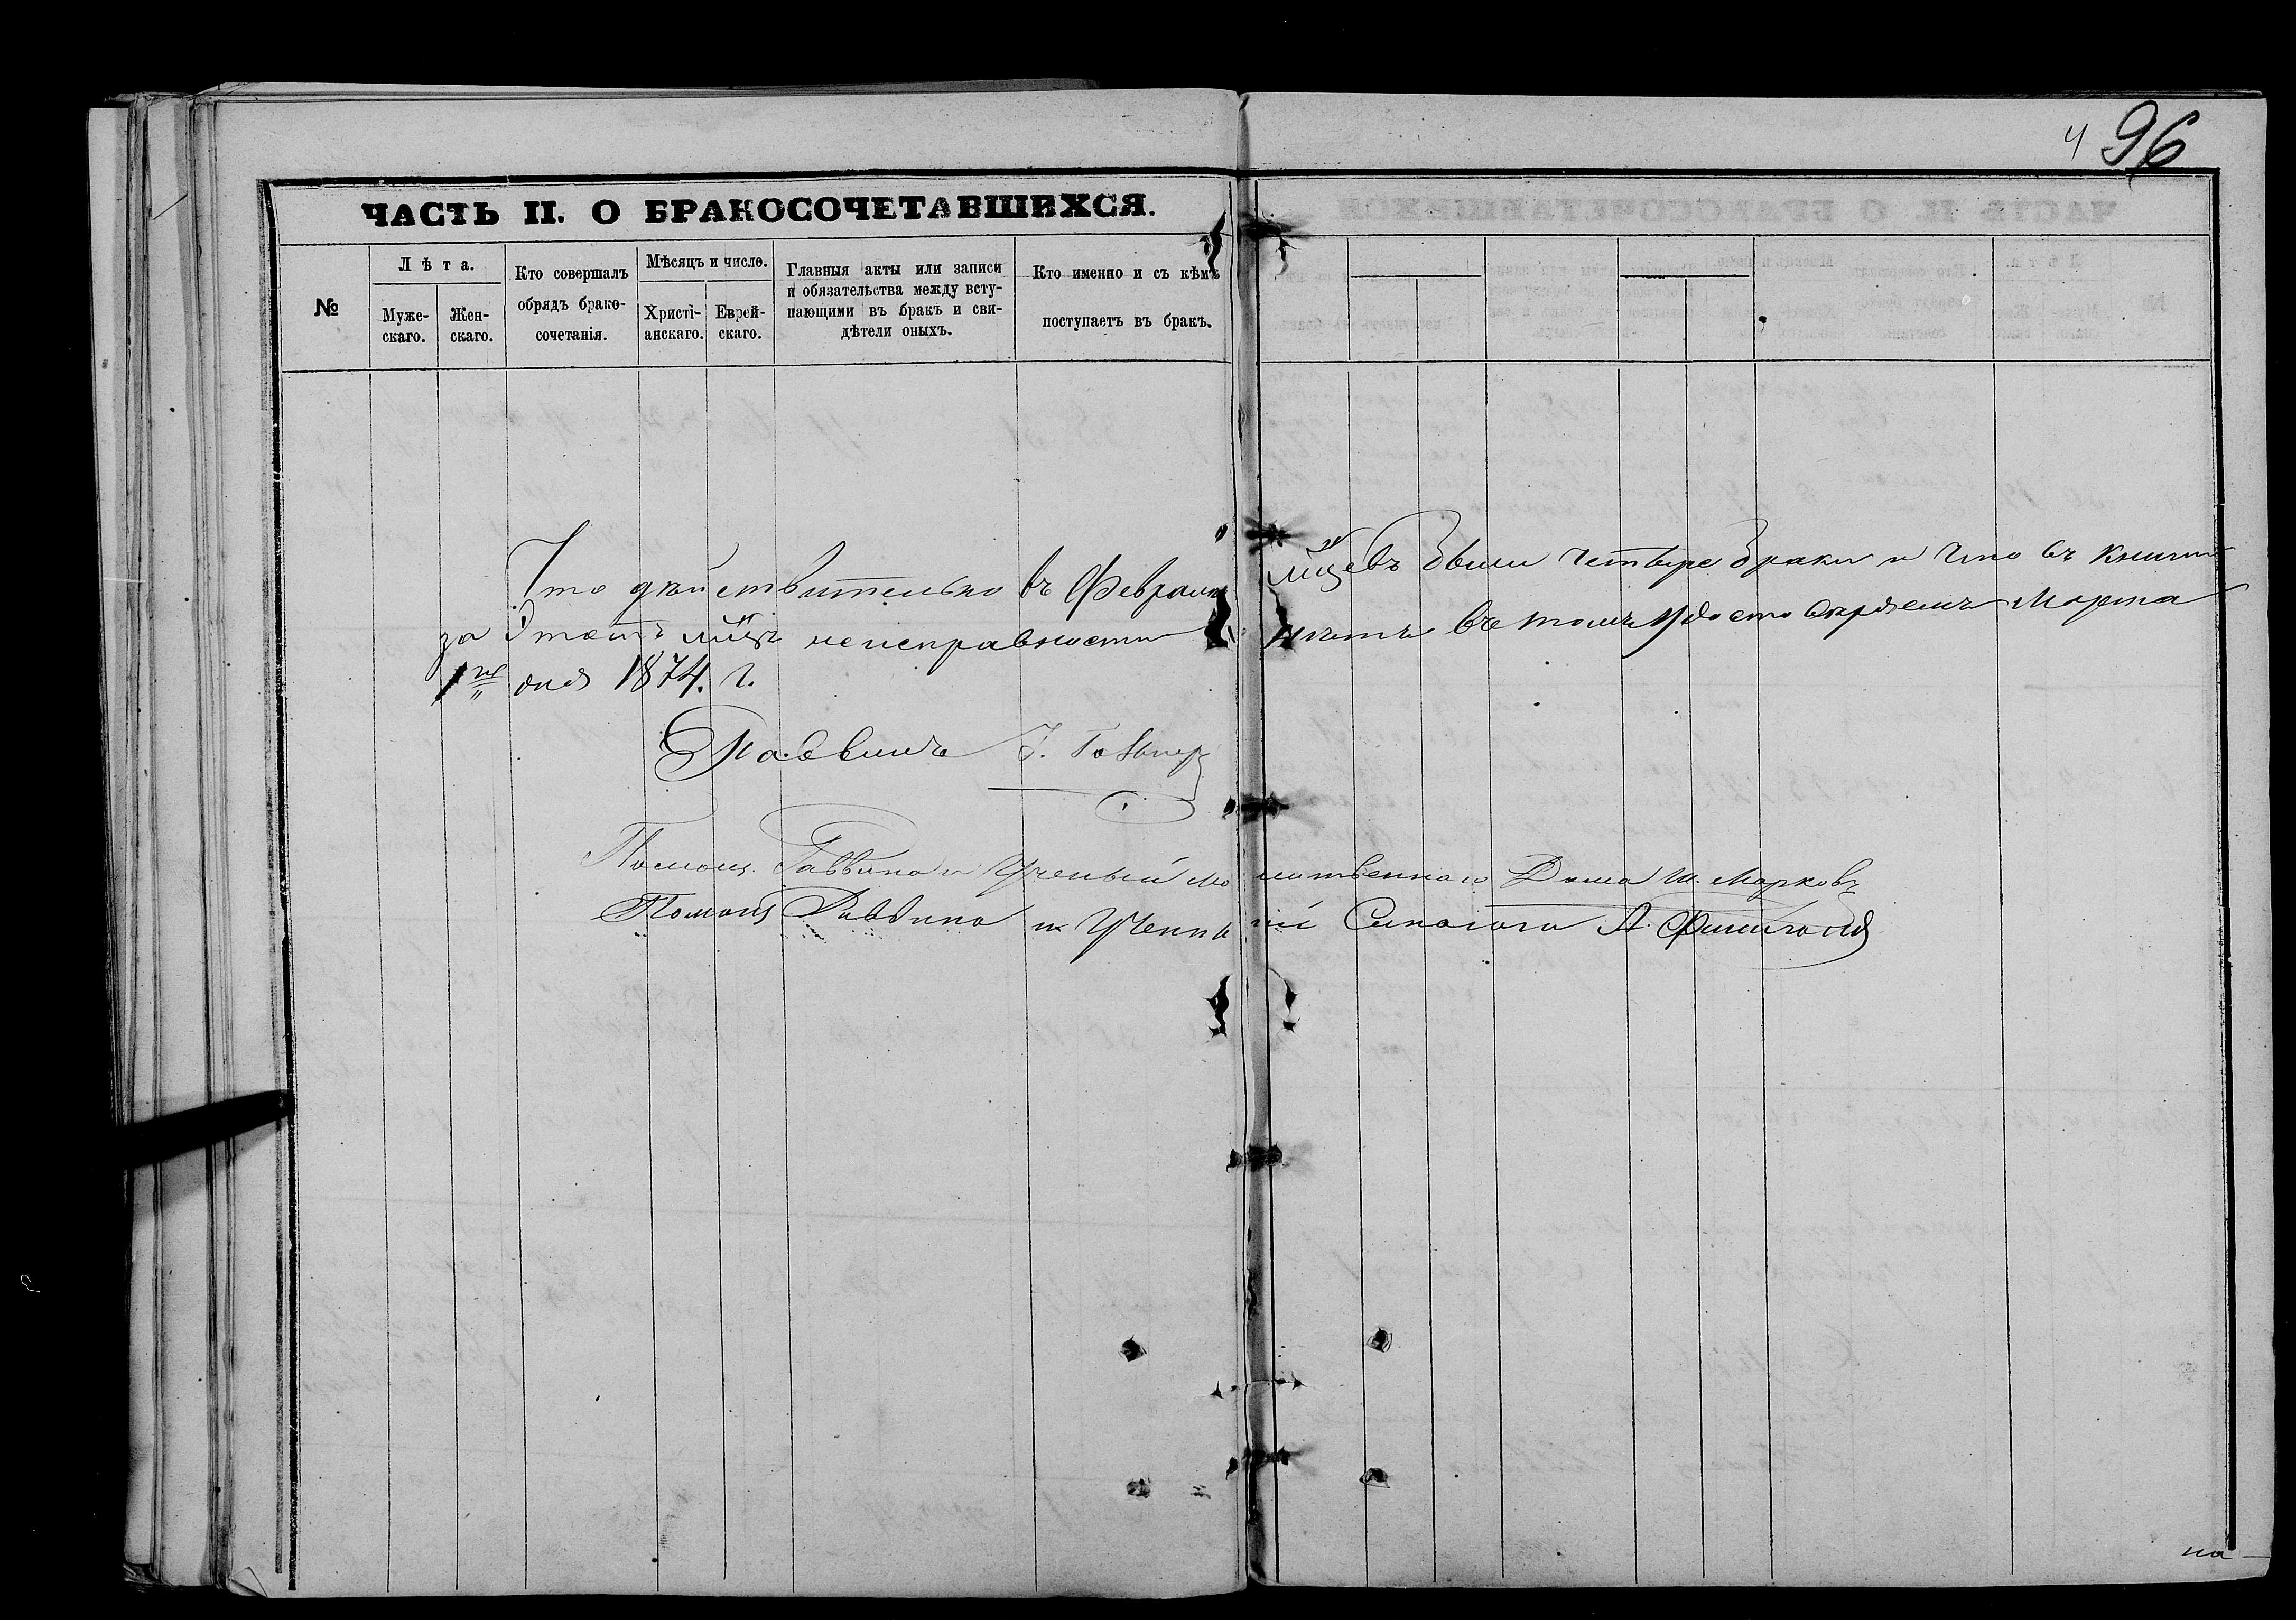 4 96
ЧАСТЬ II. О БРАКОСОЧЕТАВШИХСЯ.
№
Лѣта.
Муже-
скаго.
Жен-
скаго.
Кто совершалъ
обрядъ брако-
сочетанія.
Мѣсяцъ и число.
Христі-
анскаго.
Еврей-
скаго.
Главныя акты или записи
и обязательства между всту-
пающими въ бракъ и сви-
дѣтели оныхъ.
Кто именно и съ кѣмъ
поступаетъ въ бракъ.
Что дѣйствительно въ Февралѣ мцѣ были четыре браки и что въ книги
за этотъ мцъ неисправности нѣтъ въ томъ удостовѣряемъ Марта
1го дня 1874. г.
Раввинъ
Помощ. Раввина и Ученый молитвеннаго Дома Ш. Марковъ
Помощ Раввина и Ученый Синагоги А.
на